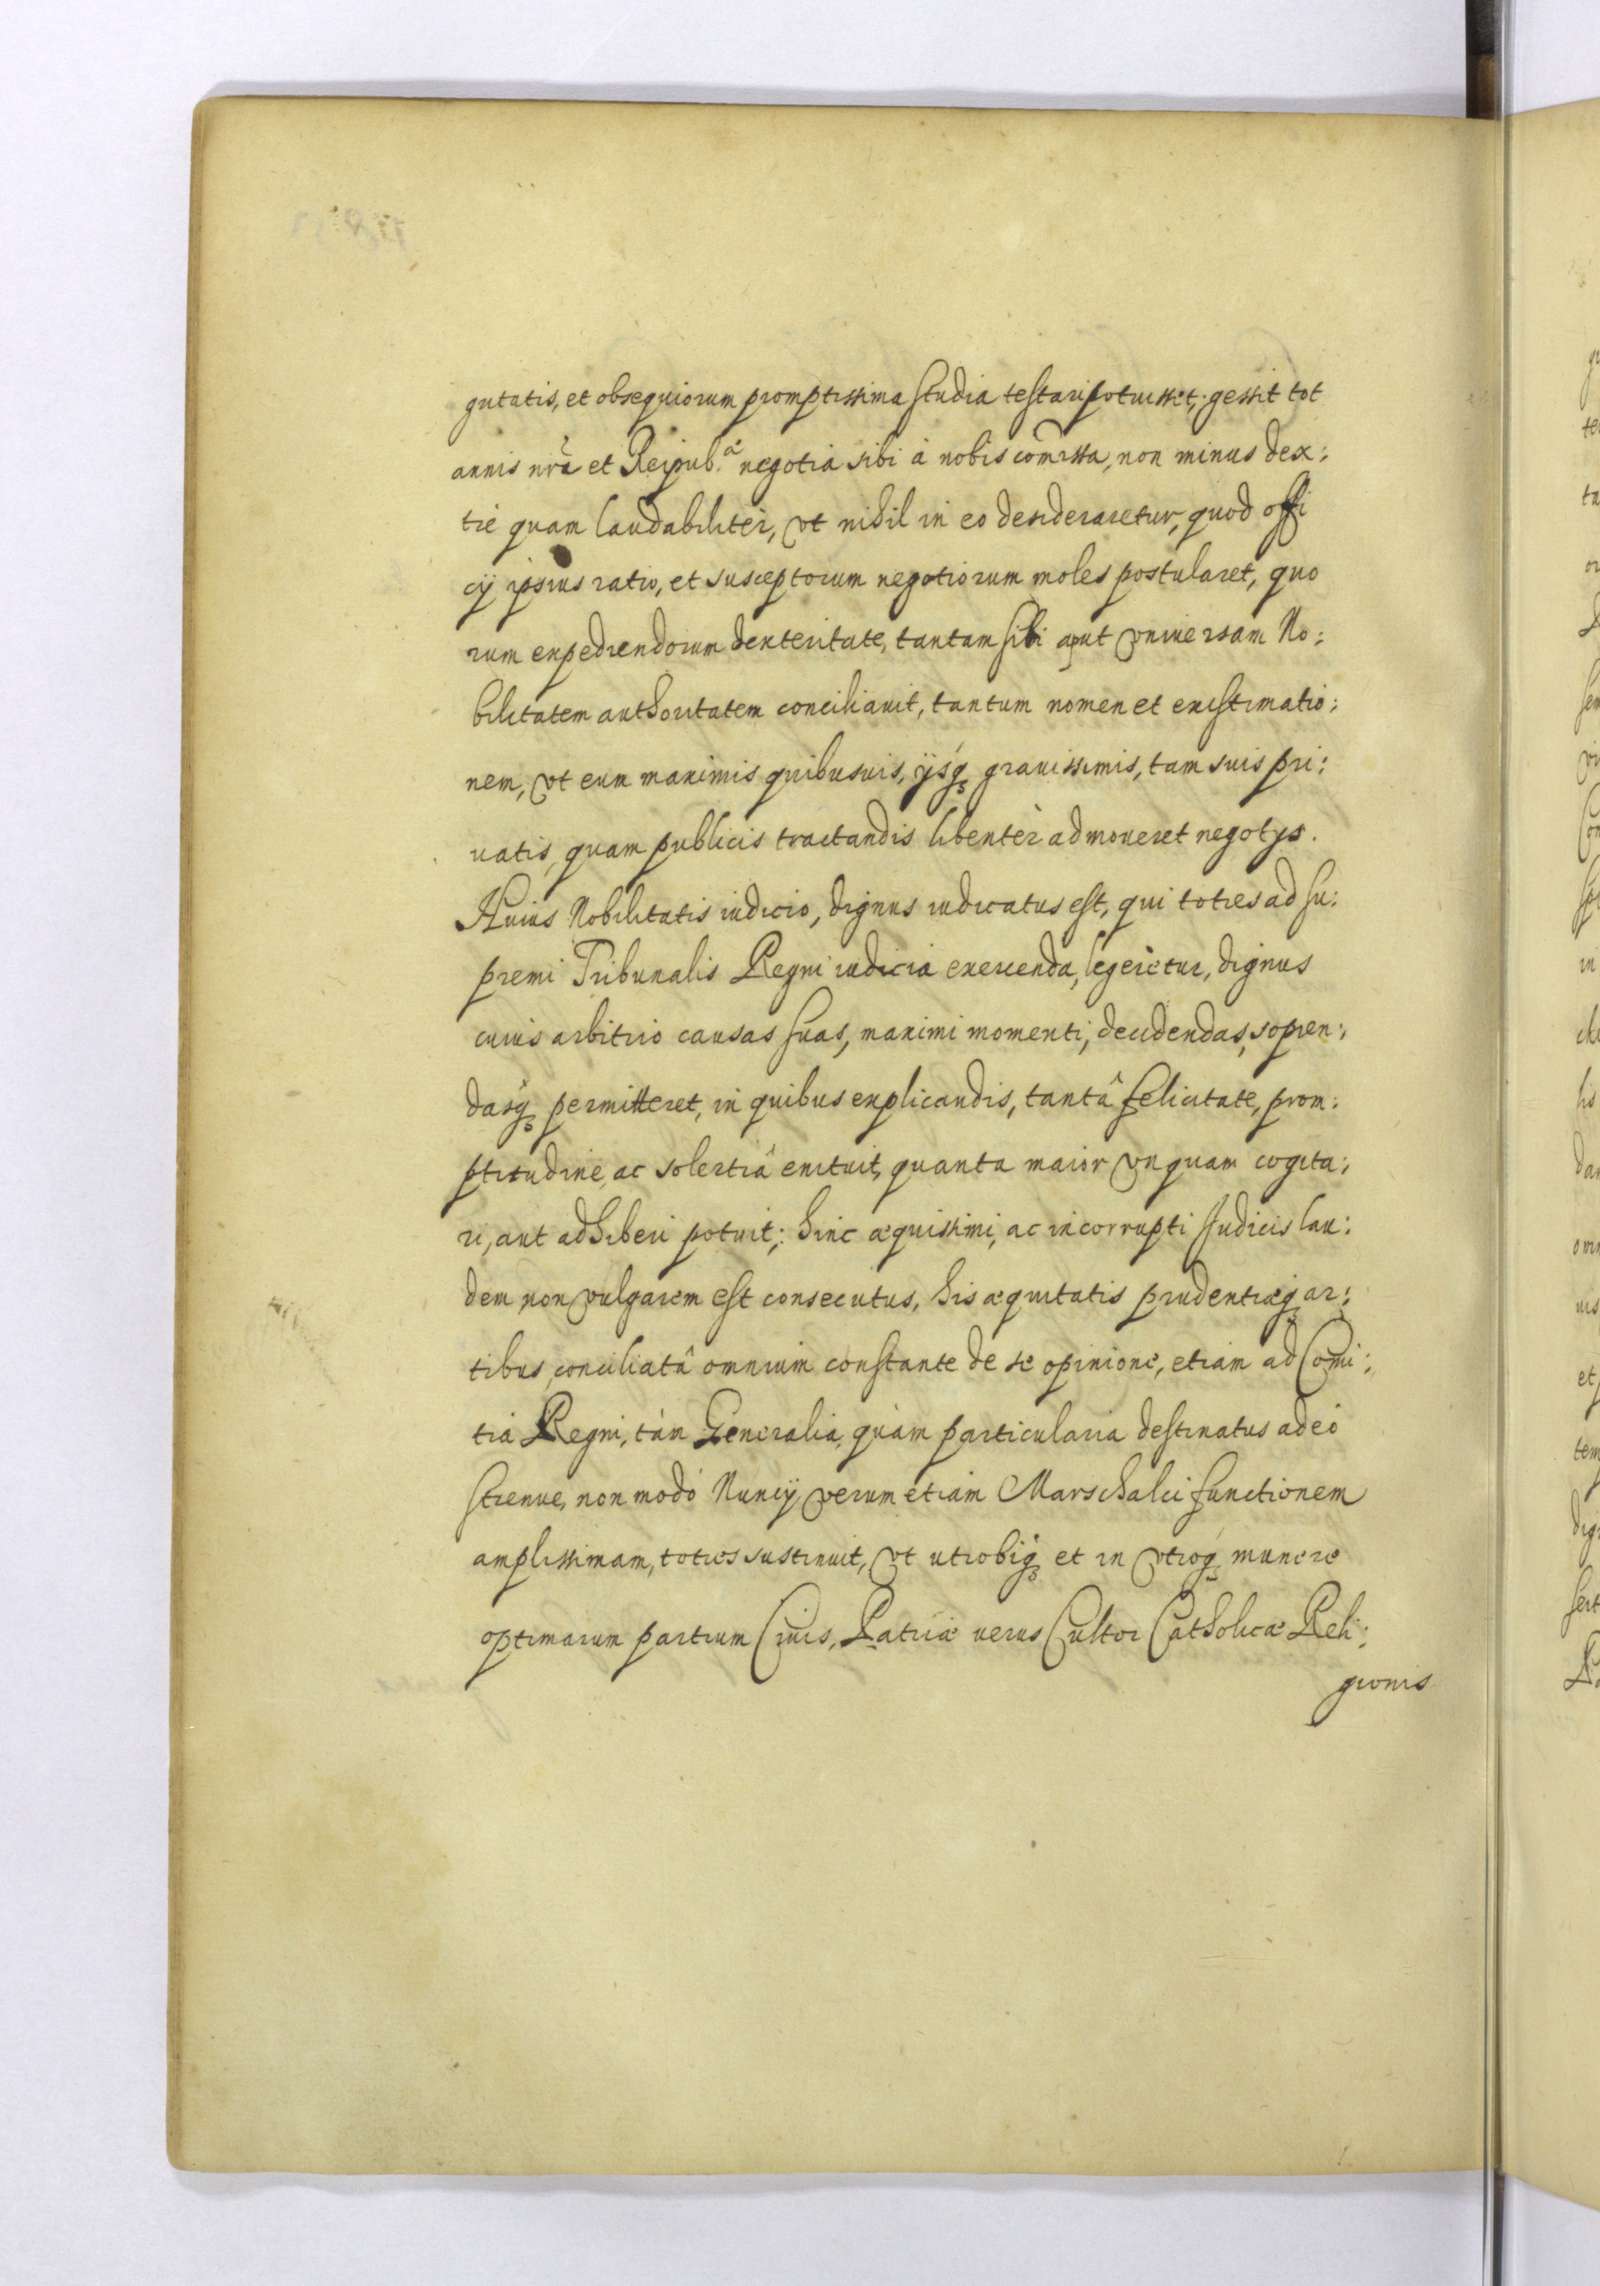 gnitatis, et obsequiorum promptissima studia testari potuisset; gessit tot
annis nrã et Reipub.ᵃ negotia sibi à nobis com̃issa, non minus dex:
trè quam laudabilitèr, vt nihil in eo desideraretur, quod offi
cij ipsius ratio, et susceptorum negotiorum moles postularet, quo
rum expediendorum dexteritate, tantam sibi aput vniuersam No:
bilitatem authoritatem conciliauit, tantum nomen et existimatio:
nem, vt eum maximis quibusuis, ijsq́ꝫ grauissimis, tam suis pri:
uatis, quam publicis tractandis libentèr admoueret negotys.
Huius Nobilitatis iudicio, dignus iudicatus est, qui toties ad su:
premi Tribunalis Regni iudicia exercenda, legeretur, dignus
cuius arbitrio causas suas, maximi momenti, decidendas, sopien:
dasq́ꝫ permitteret, in quibus explicandis, tantâ felicitate, prom:
ptitudine, ac solertiâ enituit, quanta maior vnquam cogita:
ri, aut adhiberi potuit; hinc æquissimi, ac incorrupti Judicis lau:
dem non vulgarem est consecutus, his æquitatis prudentiæqꝫ ar:
tibus, conciliatâ omnium constante de se opinione, etiam ad Comi:
tia Regni, tàm Generalia, quàm particularia destinatus adeò
strenue, non modò Nuncij, verum etiam Marschalci functionem
amplissimam, toties sustinuit, vt utrobiqꝫ et in vtroqꝫ munere
optimarum partium Ciuis, Patriæ verus Cultor Catholicæ Reli:
gionis